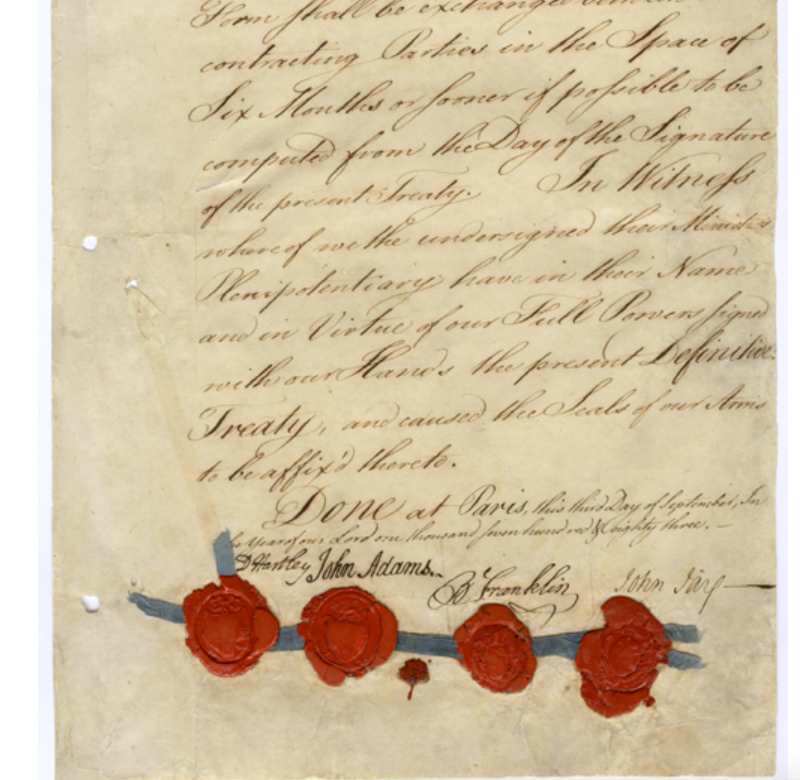 Form shall be exchanged between
contracting Parties in the Space of
Six Months or sooner if possible to be
computed from the Day of the Signature
of the present Treaty. In Witness
whereof we the undersigned their Ministers
Plenipotentiary have in their Name
and in Virtue of our Full Powers signed
with our Hands the present Definitive
Treaty, and caused the Seals of our Arms
to be affix'd thereto.
Done at Paris, this third Day of September, In
the Year of our Lord one thousand seven hundred & eighty three.—
D Hartley John Adams.
B Franklin John Jay—